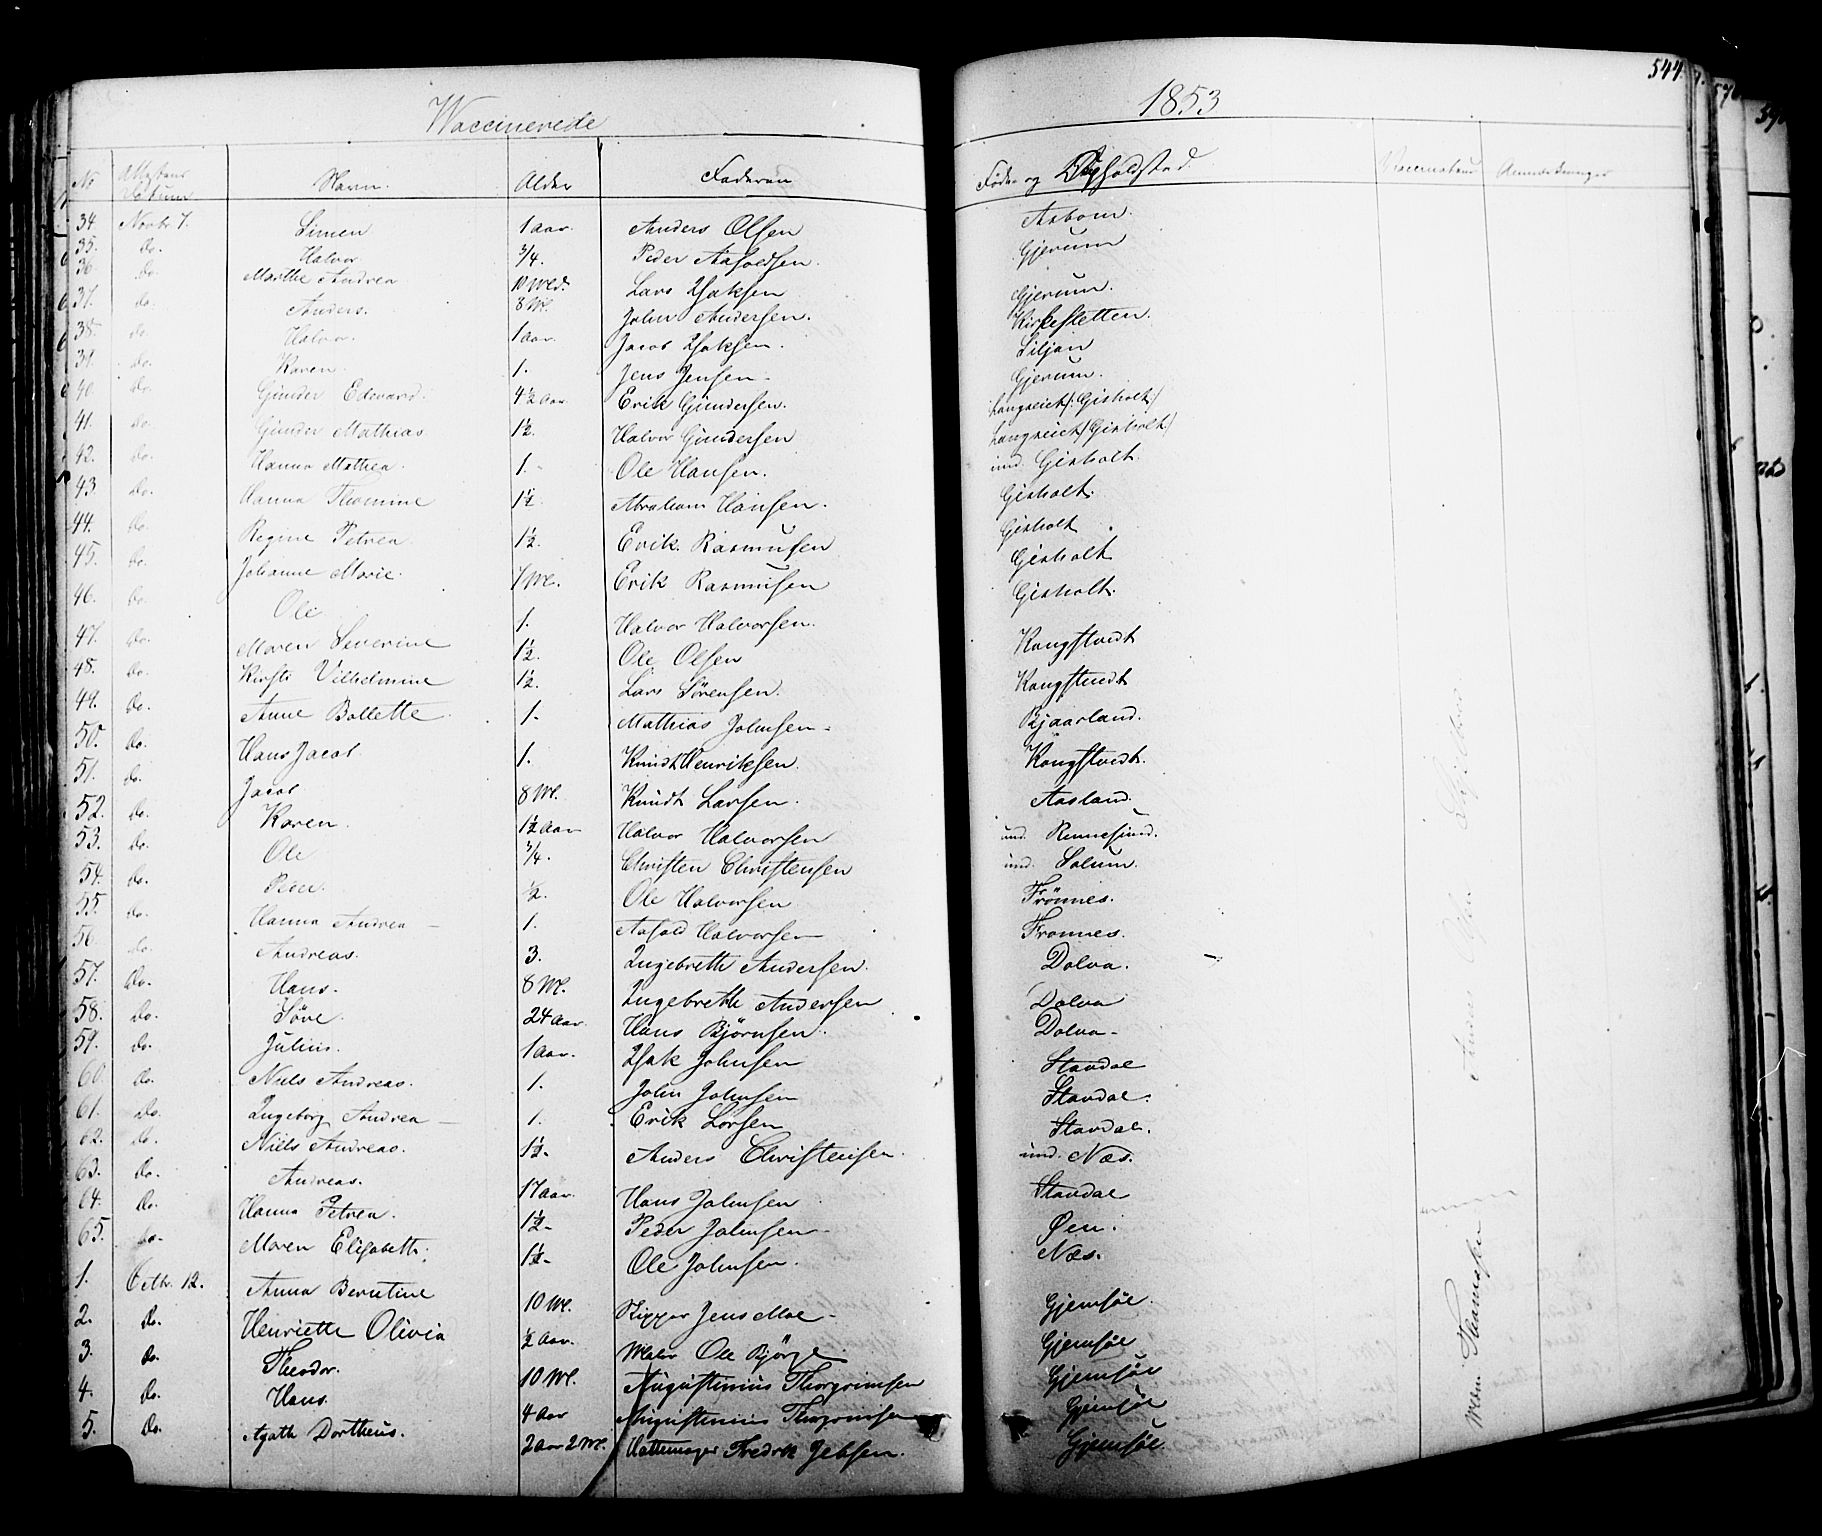 Waccinerede 1853 544
No Attestens Datum Navn. Alder Faderen Føde- og Opholdsted Vaccinateur Anmærkninger
34 Novbr 7. Simen 1 aar. Anders Olsen Aasbom.
35. Do. Halvor 3/4. Peder Aasoldsen. Gjerum
36 Do. Marthe Andrea 10 Md. Lars Isaksen Gjerum.
37. Do. Anders. 8 Md. John Andersen. Kirkesletten.
38. Do. Halvor. 1 aar. Jacob Isaksen. Siljan
39. Do. Karen. 1. Jens Jensen. Gjerum.
40. Do. Gunder Edevard. 4½ aar Erik Gundersen. Langseiet /: Gisholt :/
41. Do. Gunder Mathias 1½. Halvor Gundersen Langseiet /: Gisholt :/
42. Do. Hanna Mathea. 1. Ole Hansen. und. Gisholt.
43. Do. Hanna Thomine 1½. Abraham Hansen. Gisholt.
44. Do. Regine Petrea 1½. Erik Rasmusen Gisholt
45. Do. Johanne Marie. 7 Md. Erik Rasmusen Gisholt
46. Do. Ole 1. Halvor Halvorsen. Gisholt.
47. Do. Maren Severine 1½. Ole Olsen Kongstvedt
48. Do. Kirsti Vilhelmine 1½. Lars Sørensen. Kongstvedt
49. Do. Anne Bollette. 1. Mathias Johnsen. Bjaarland.
50. Do. Hans Jacob. 1. Knudt Henriksen. Kongstvedt.
51. Do. Jacob 8 Md. Knudt Larsen. Aasland.
52. Do. Karen. 1½ aar Halvor Halvorsen und. Rennesund.
53. Do. Ole 3/4. Christen Christensen und. Solum.
54. Do. Peder. ½. Ole Halvorsen Frönnes.
55. Do. Hanna Andrea 1. Aasold Halvorsen Fronnes.
56. Do. Andreas. 3. Ingebreth Andersen. Dolva.
57. Do. Hans. 8 Md. Ingebreth Andersen Dolva
58. Do. Søve. 24 aar. Hans Bjørnsen. Dolva.
59. Do. Julius. 1 aar. Isak Johnsen Stavdal
60. Do. Niels Andreas. 1. John Johnsen Stavdal.
61. Do. Ingeborg Andrea 1. Erik Larsen Stavdal.
62. Do. Niels Andreas. 1½. Anders Christensen. und. Næs.
63. Do. Andreas. 17 aar. Hans Johnsen Stavdal
64. Do. Hanna Petrea. 1½. Peder Johnsen Øen.
65. Do. Maren Elisabeth. 1½. Ole Johnsen. Næs.
1. Octbr. 12. Anna Berntine 10 Md. Skipper Jens Moe Gjemsøe.
2. Do. Henriette Olivia ½ aar. Maler Ole Bjørge Gjemsøe
3. Do. Theodor. 10 Md. Augustinius Thorgrimsen Gjemsøe
4. Do. Hans. 4 aar Augustinius Thorgrimsen Gjemsøe
5. Do. Agath Dortheus. 2 aar 2 Md. Hattemager Fredrik Jebsen. Gjemsøe.